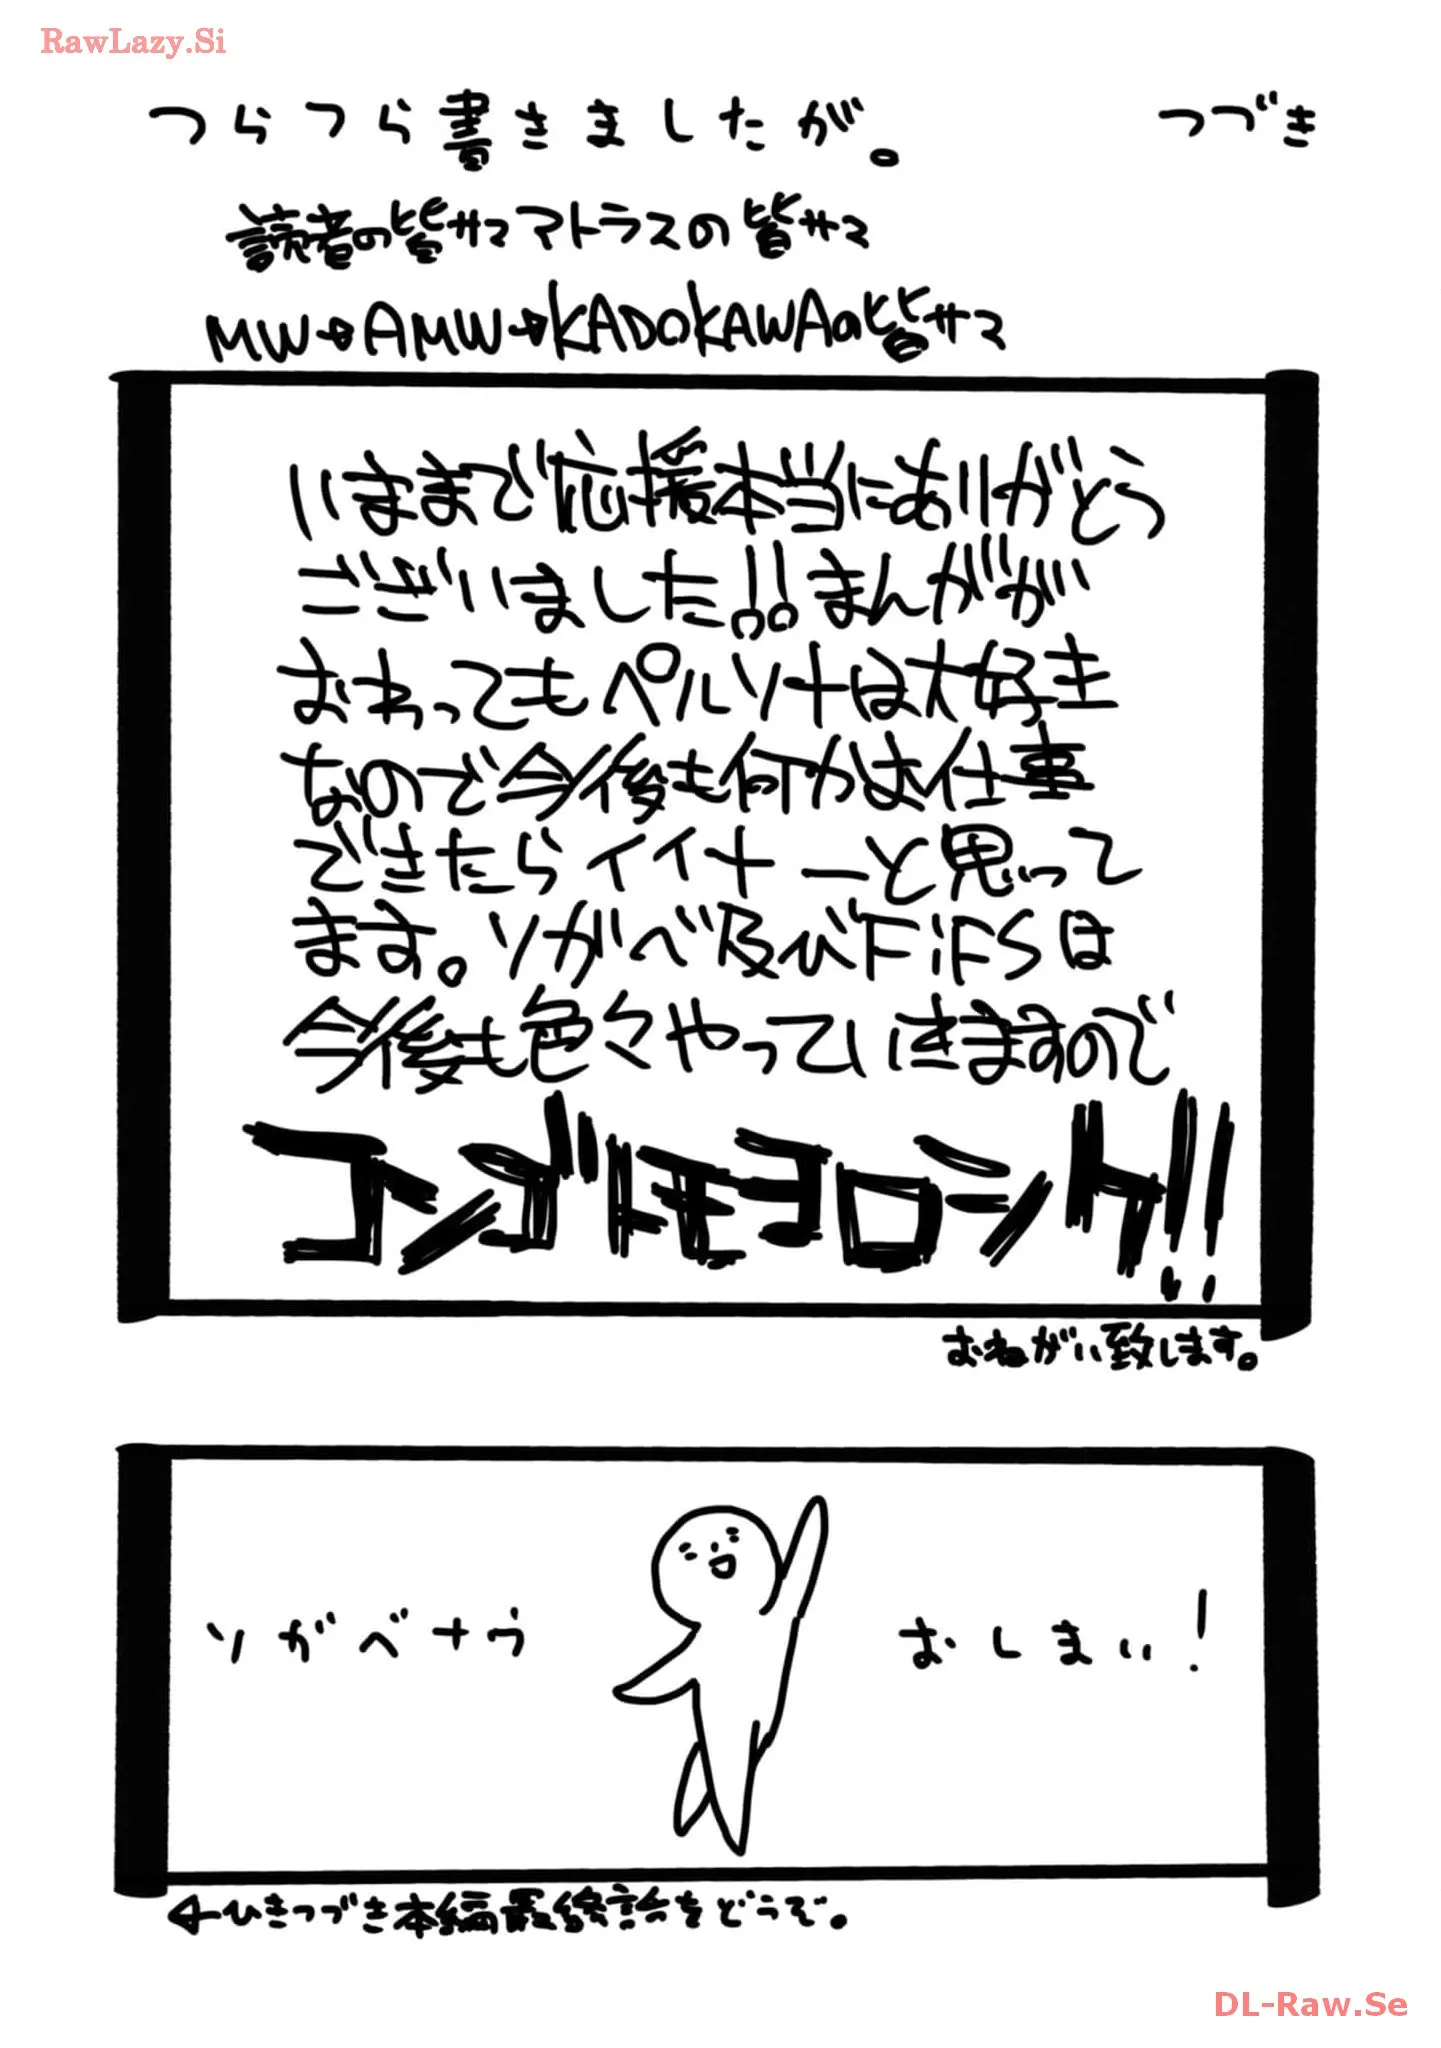 RawLazy.Si
つづき
つらつら書きましたが。
読者の皆サマアトラスの皆サマ
MW→AMW→KADOKAWAの皆サマ
いままで応援本当にありがとう
ございました!!まんがが
おわってもペルソナは大好き
なので今後も何かお仕事
できたらイイナーと思って
ます。ソガベ及びFiFSは
今後も色々やっていきますので
コンゴトモヨロシク!!
おねがい致します。
ソガベナウ
おしまい!
←ひきつづき本編最終話をどうぞ。
DL-Raw.Se